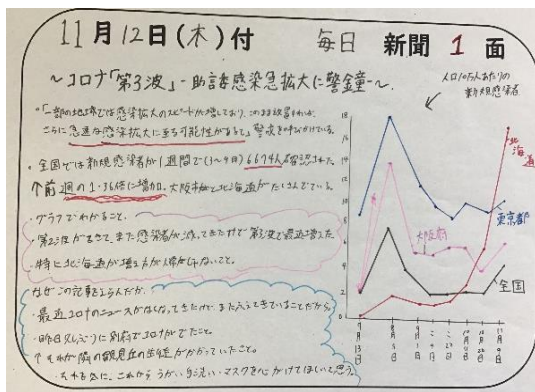 11月12日(木)付 毎日 新聞 1 面
～コロナ「第3波」-助言感染急拡大に警鐘-～
人口10万人あたりの
新規感染者
・「一部の地域では感染拡大のスピードが増しており、このまま放置すれば、
さらに急速な感染拡大に至る可能性がある」と警戒を呼びかけている。
・全国では新規感染者が1週間で(1～9日)6674人確認された
↑前週の1.36倍に増加。大阪府と北海道がたくさんでている。
・グラフでわかること。
・第2波がきて、また感染者が減ってきたけど第3波で最近増えた
・特に北海道が増え方が
なぜこの記事をえらんだか。
・最近コロナのニュースがなくなってきたけど、また ふえてきていることだから。
・昨日 別府でコロナがでたこと。
隣の いたこと。
これからうがい・手洗い・マスクを心がけてほしいと思う。
18
14
12
10
8
6
4
2
0
北海道
東京都
大阪府
全国
7月13日
8月
11月9日